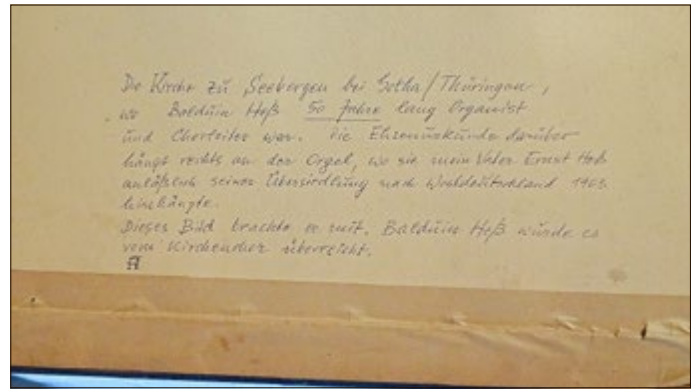 Die Kirche zu Seebergen bei Gotha/Thüringen,
wo Balduin Heß 50 Jahre lang Organist
und Chorleiter war. Die Ehrenurkunde darüber
hängt rechts an der Orgel, wo sie mein Vater Ernst Heß
anläßlich seiner Übersiedlung nach Westdeutschland 1963
hinhängte.
Dieses Bild brachte er mit. Balduin Heß wurde es
vom Kirchenchor überreicht.